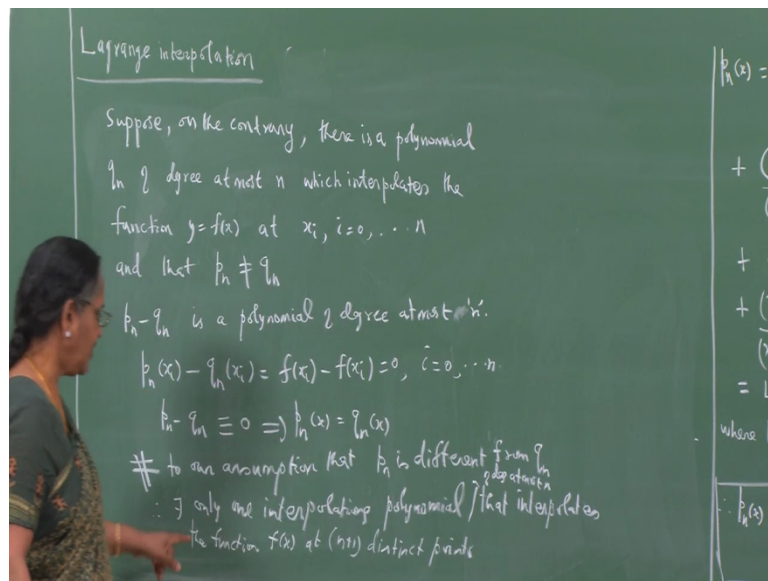 Lagrange interpolation
Suppose, on the contrary, there is a polynomial
qₙ of degree atmost n which interpolates the
function y=f(x) at xᵢ, i=0, ... n
and that pₙ ≠ qₙ
pₙ - qₙ is a polynomial of degree atmost 'n'.
pₙ(xᵢ) - qₙ(xᵢ) = f(xᵢ) - f(xᵢ) = 0, i=0, ... n.
pₙ - qₙ ≡ 0 ⟹ pₙ(x) = qₙ(x)
# to our assumption that pₙ is different from qₙ
of deg atmost n
∴ ∃ only one interpolating polynomial that interpolates
the function f(x) at (n+1) distinct points
pₙ(x) =
+ (
+
+ (
=
where
∴ pₙ(x)